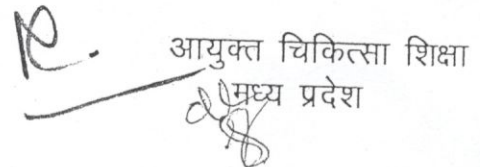 आयुक्त चिकित्सा शिक्षा
मध्य प्रदेश